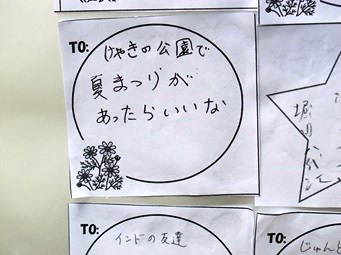 TO:
けやきの公園で
夏まつりが
あったらいいな
TO:
インドの友達
TO:
じゅんと